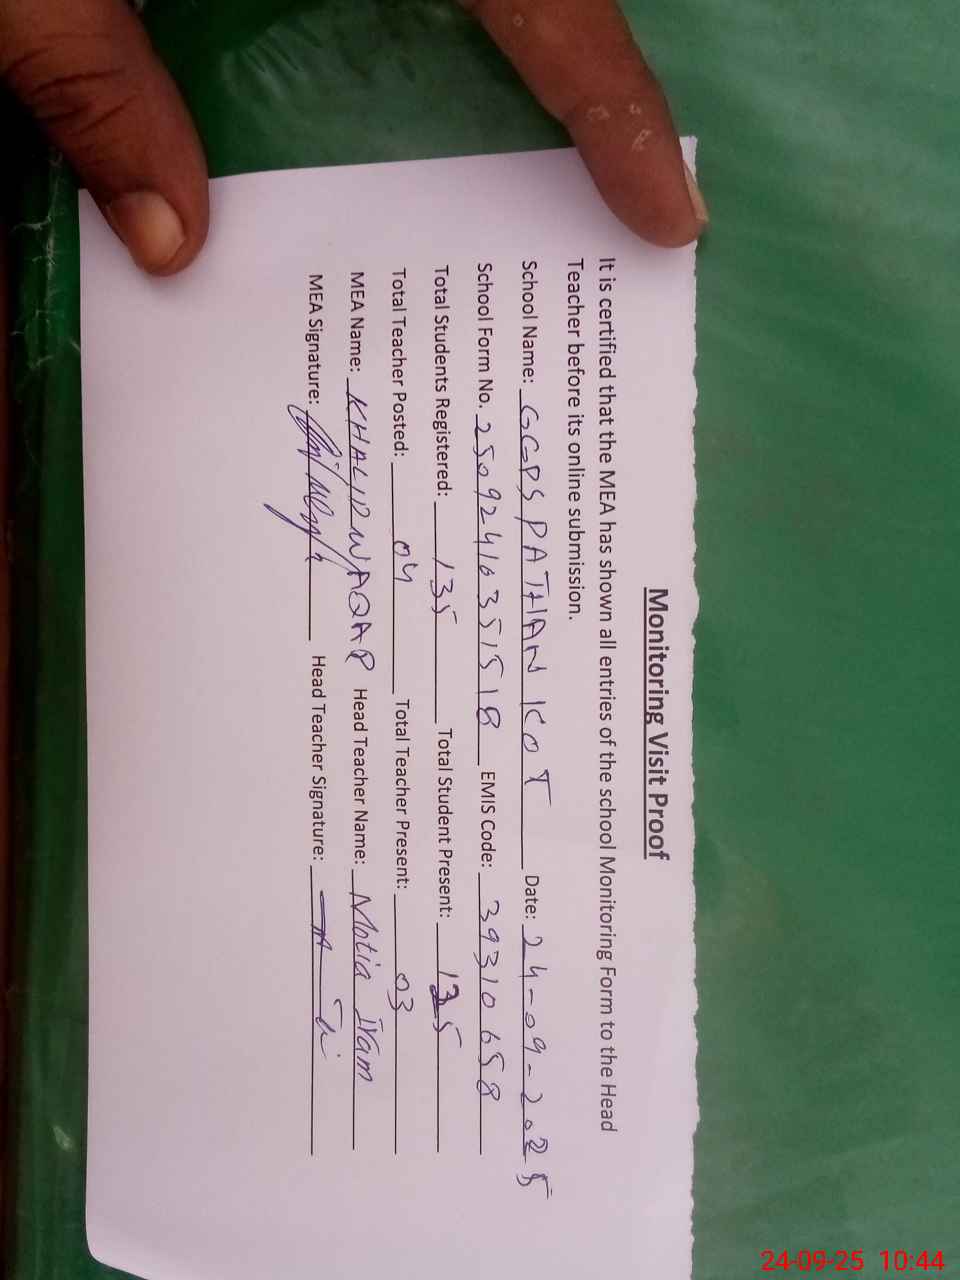 Monitoring Visit Proof
It is certified that the MEA has shown all entries of the school Monitoring Form to the Head
Teacher before its online submission.
School Name: GGPS PATHAN KOT Date: 24-09-2025
School Form No. 25092416351518 EMIS Code: 39310658
Total Students Registered: 135 Total Student Present: 135
Total Teacher Posted: 04 Total Teacher Present: 03
MEA Name: KHALID WAQAR Head Teacher Name: Motia Iram
MEA Signature: Head Teacher Signature:
24-09-25 10:44